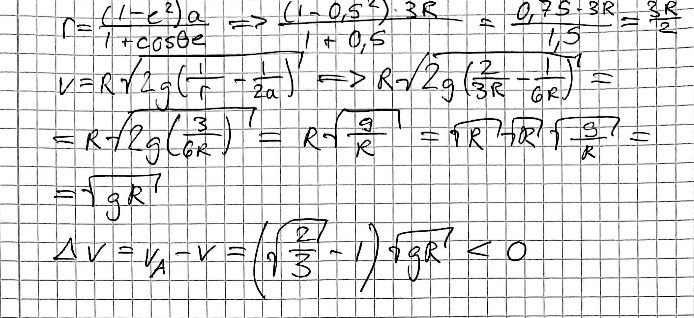 r = (1-e²)a / 1+cosθe => (1-0,5²)·3R / 1+0,5 = 0,75·3R / 1,5 = 3R/2
v = R√(2g(1/r - 1/2a)) => R√(2g(2/3R - 1/6R)) =
= R√(2g(3/6R)) = R√(g/R) = √R √R √(g/R) =
= √(gR)
Δv = v_A - v = (√(2/3) - 1)√(gR) < 0